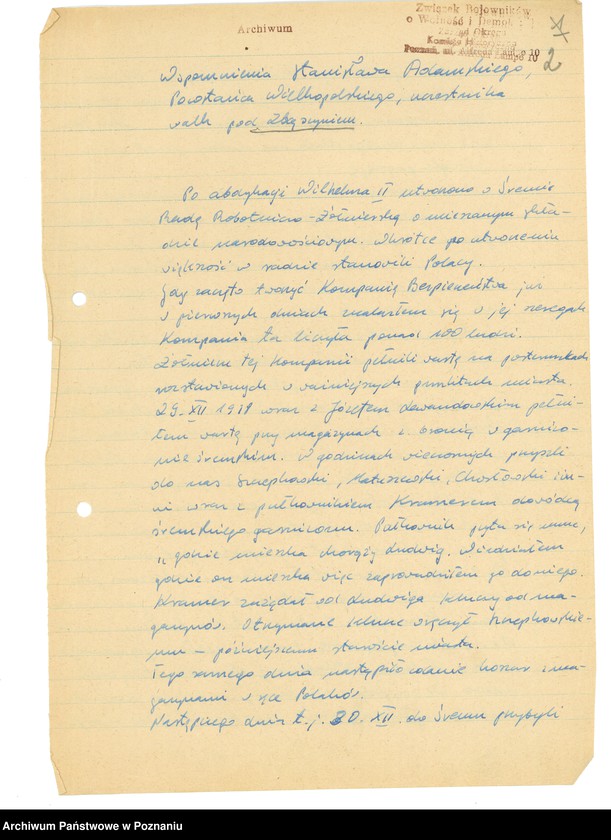 Archiwum
Związek Bojowników
o Wolność i Demokr
Zarząd Okręgu
Komisja Historyczna
Poznań, ul. Alfreda Lampe 10
2
Wspomnienia Stanisława Adamskiego,
Powstańca Wielkopolskiego, uczestnika
walk pod Zbąszyniem.
Po abdykacji Wilhelma II utworzono w Śremie
Radę Robotniczo-Żołnierską o mieszanym skła-
dzie narodowościowym. Wkrótce po utworzeniu
większość w radzie stanowili Polacy.
Gdy zaczęto tworzyć Kompanię Bezpieczeństwa już
w pierwszych dniach znalazłem się w jej szeregach
Kompania ta liczyła ponad 100 ludzi.
Żołnierze tej Kompanii pełnili wartę na posterunkach
rozstawionych w ważniejszych punktach miasta.
29-XII 1918 wraz z Józefem Lewandowskim pełni-
łem wartę przy magazynach z bronią w garnizo-
nie śremskim. W godzinach wieczornych przyszli
do nas Szczepkowski, Matuszewski, Chosłowski i in-
ni wraz z pułkownikiem Kramerem dowódcą
śremskiego garnizonu. Pułkownik pyta się mnie,
"gdzie mieszka chorąży Ludwig. Wiedziałem
gdzie on mieszka więc zaprowadziłem go do niego.
Kramer zażądał od Ludwiga kluczy od ma-
gazynów. Otrzymane klucze wręczył Szczepkowskie-
mu – późniejszemu staroście miasta.
Tego samego dnia nastąpiło oddanie koszar i ma-
gazynami w ręce Polaków.
Następnego dnia t.j. 30-XII. do Śremu przybyli
Archiwum Państwowe w Poznaniu